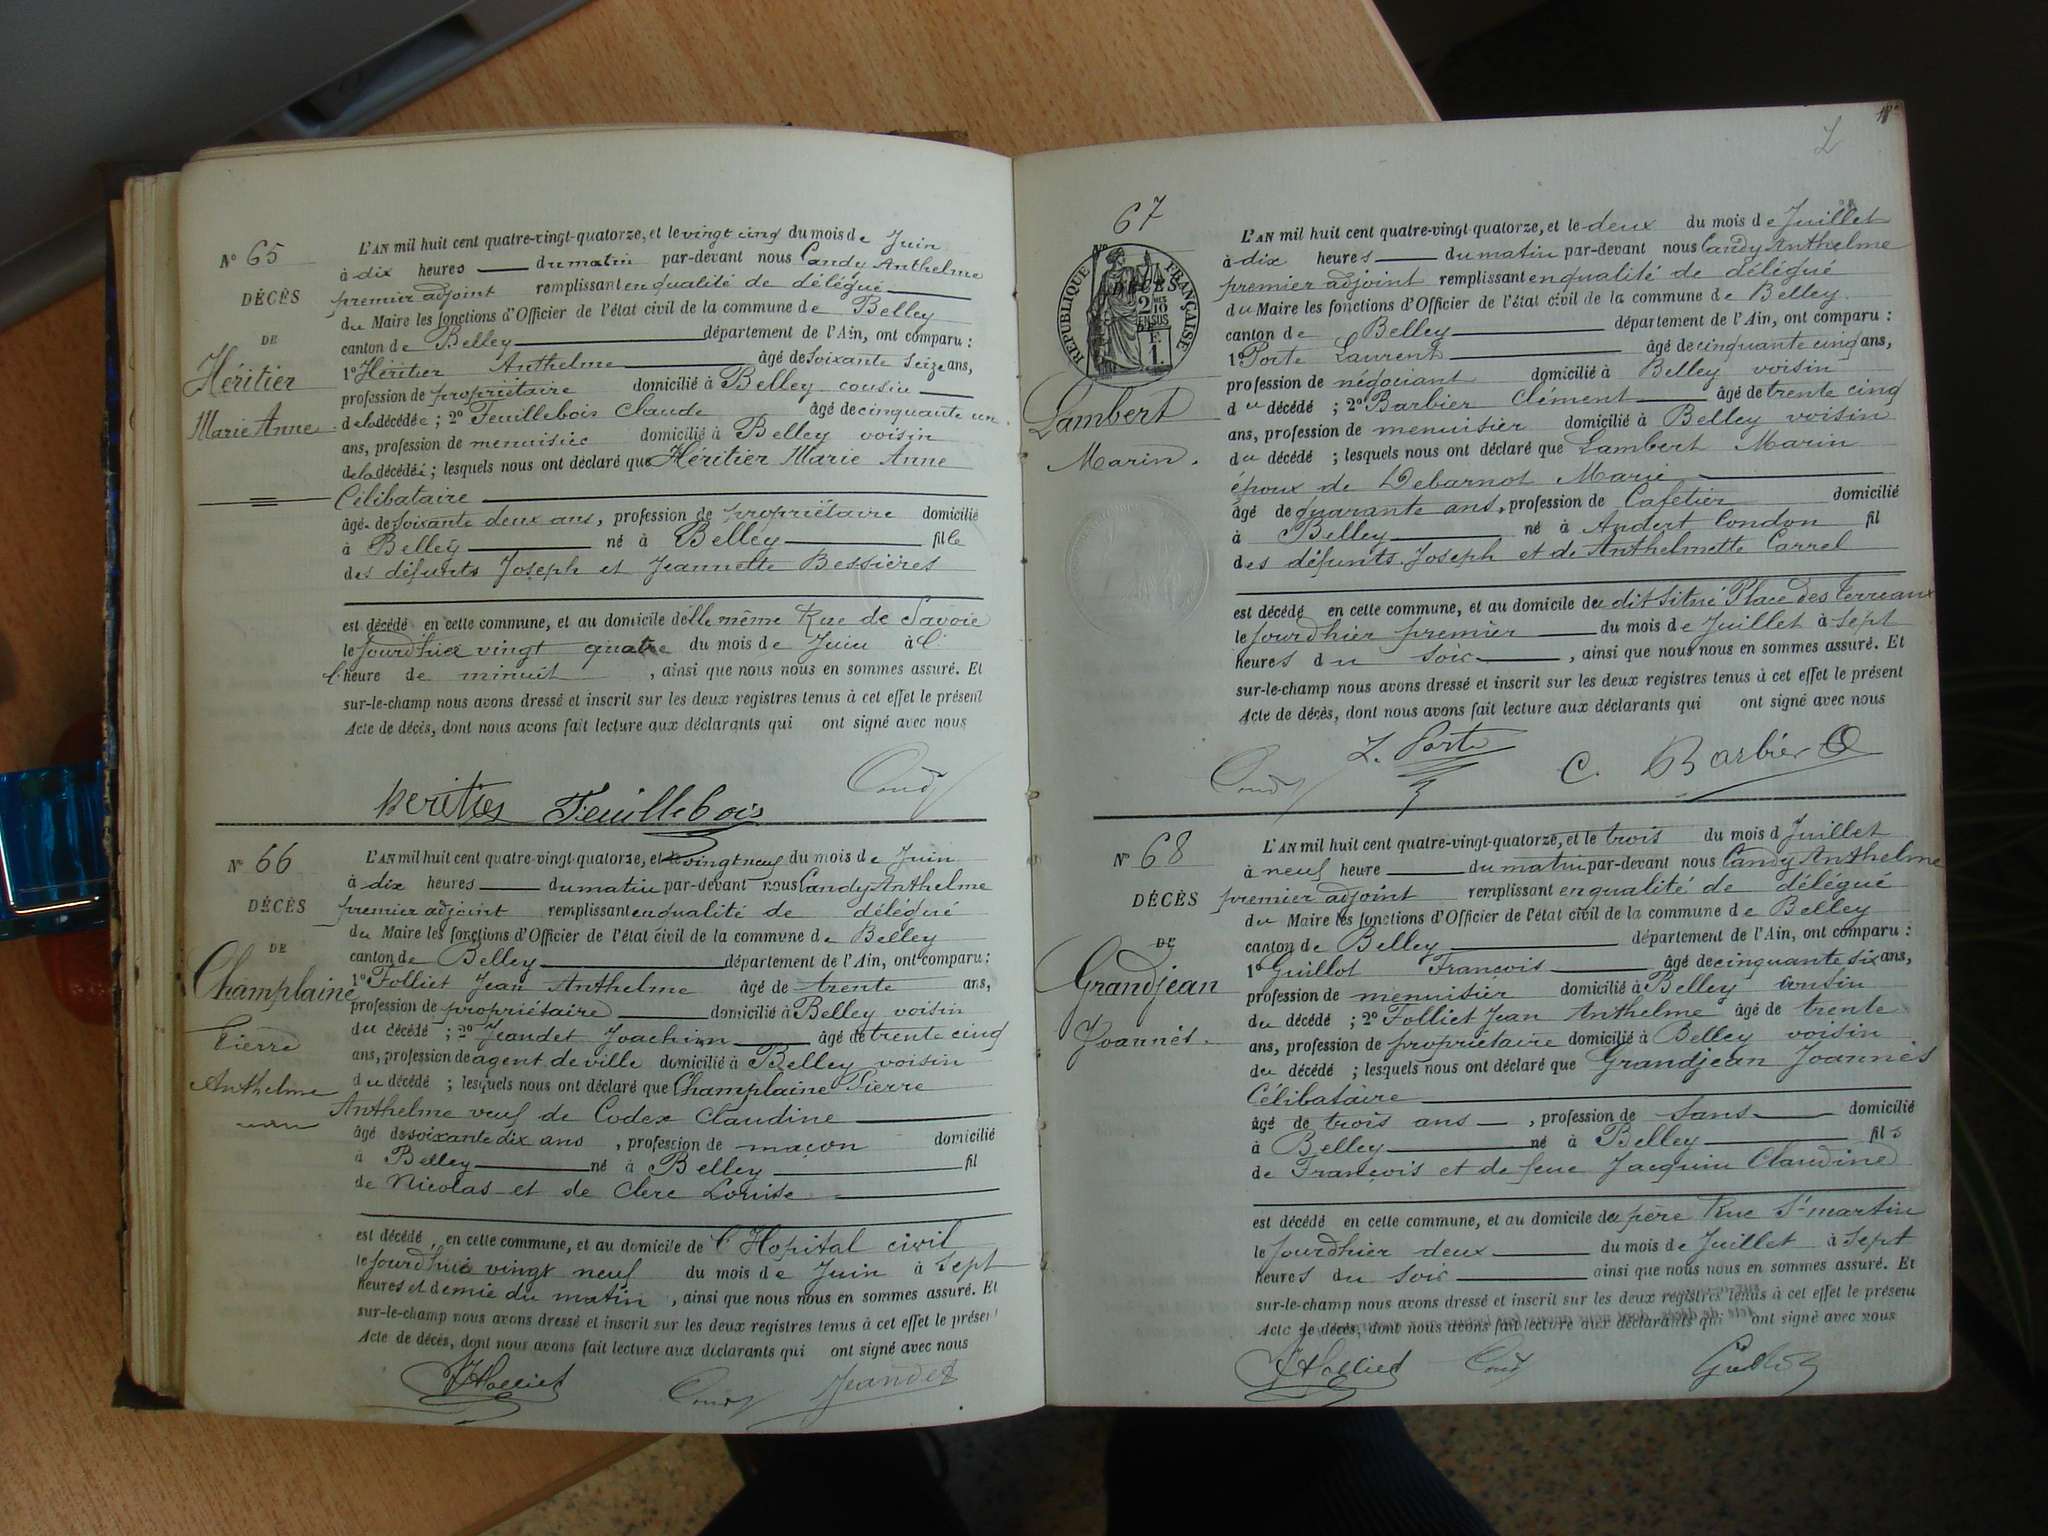 N° 65
DÉCÈS
DE
Héritier
Marie Anne
L'AN mil huit cent quatre-vingt-quatorze, et le vingt cinq du mois de Juin
à dix heures du matin par-devant nous Candy Anthelme
premier adjoint remplissant en qualité de délégué
du Maire les fonctions d'Officier de l'état civil de la commune de Belley
canton de Belley département de l'Ain, ont comparu :
1° Héritier Anthelme âgé de soixante seize ans,
profession de propriétaire domicilié à Belley cousin
de la décédée ; 2° Feuillebois Claude âgé de cinquante un
ans, profession de menuisier domicilié à Belley voisin
de la décédée ; lesquels nous ont déclaré que Héritier Marie Anne
Célibataire
âgé de soixante deux ans, profession de propriétaire domicilié
à Belley né à Belley fille
des défunts Joseph et Jeannette Bessières
est décédé en cette commune, et au domicile d'elle même Rue de Savoie
le jourdhier vingt quatre du mois de Juin à l'
heure de minuit , ainsi que nous nous en sommes assuré. Et
sur-le-champ nous avons dressé et inscrit sur les deux registres tenus à cet effet le présent
Acte de décès, dont nous avons fait lecture aux déclarants qui ont signé avec nous
heritier Feuillebois Candy
N° 66
DÉCÈS
DE
Champlaine
Pierre
Anthelme
L'AN mil huit cent quatre-vingt-quatorze, et le vingt neuf du mois de Juin
à dix heures du matin par-devant nous Candy Anthelme
premier adjoint remplissant en qualité de délégué
du Maire les fonctions d'Officier de l'état civil de la commune de Belley
canton de Belley département de l'Ain, ont comparu :
1° Folliet Jean Anthelme âgé de trente ans,
profession de propriétaire domicilié à Belley voisin
du décédé ; 2° Jeandet Joachim âgé de trente cinq
ans, profession de agent de ville domicilié à Belley voisin
du décédé ; lesquels nous ont déclaré que Champlaine Pierre
Anthelme veuf de Codex Claudine
âgé de soixante dix ans , profession de maçon domicilié
à Belley né à Belley fil
de Nicolas et de Clerc Louise
est décédé en cette commune, et au domicile de l'Hopital civil
le jourdhui vingt neuf du mois de Juin à sept
heures et demie du matin , ainsi que nous nous en sommes assuré. Et
sur-le-champ nous avons dressé et inscrit sur les deux registres tenus à cet effet le présent
Acte de décès, dont nous avons fait lecture aux déclarants qui ont signé avec nous
Folliet Candy Jeandet
67
RÉPUBLIQUE FRANÇAISE
DÉCÈS
2/10 EN SUS
1 F.
Lambert
Marin.
L'AN mil huit cent quatre-vingt-quatorze, et le deux du mois de Juillet
à dix heures du matin par-devant nous Candy Anthelme
premier adjoint remplissant en qualité de délégué
du Maire les fonctions d'Officier de l'état civil de la commune de Belley
canton de Belley département de l'Ain, ont comparu :
1° Porte Laurent âgé de cinquante cinq ans,
profession de négociant domicilié à Belley voisin
du décédé ; 2° Barbier Clément âgé de trente cinq
ans, profession de menuisier domicilié à Belley voisin
du décédé ; lesquels nous ont déclaré que Lambert Marin
époux de Debarnot Marie
âgé de quarante ans, profession de Cafetier domicilié
à Belley né à Andert Condon fil
des défunts Joseph et de Anthelmette Carrel
est décédé en cette commune, et au domicile du dit situé Place des Terreaux
le jourdhier premier du mois de Juillet à sept
heures du soir , ainsi que nous nous en sommes assuré. Et
sur-le-champ nous avons dressé et inscrit sur les deux registres tenus à cet effet le présent
Acte de décès, dont nous avons fait lecture aux déclarants qui ont signé avec nous
Candy L. Porte C. Barbier
N° 68
DÉCÈS
DE
Grandjean
Joannès.
L'AN mil huit cent quatre-vingt-quatorze, et le trois du mois d Juillet
à neuf heure du matin par-devant nous Candy Anthelme
premier adjoint remplissant en qualité de délégué
du Maire les fonctions d'Officier de l'état civil de la commune de Belley
canton de Belley département de l'Ain, ont comparu :
1° Guillot François âgé de cinquante six ans,
profession de menuisier domicilié à Belley cousin
du décédé ; 2° Folliet Jean Anthelme âgé de trente
ans, profession de propriétaire domicilié à Belley voisin
du décédé ; lesquels nous ont déclaré que Grandjean Joannès
Célibataire
âgé de trois ans , profession de sans domicilié
à Belley né à Belley fils
de François et de feue Jacquin Claudine
est décédé en cette commune, et au domicile du père Rue St martin
le jourdhier deux du mois de Juillet à sept
heures du soir ainsi que nous nous en sommes assuré. Et
sur-le-champ nous avons dressé et inscrit sur les deux registres tenus à cet effet le présent
Acte de décès, dont nous avons fait lecture aux déclarants qui ont signé avec nous
Folliet Candy Guillot